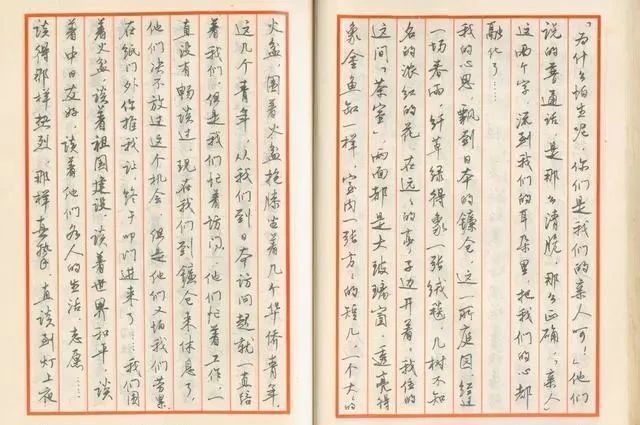 「为什么怕生呢，你们是我们的亲人呵！」他们
说的普通话是那么清脆，那么正确，「亲人」
这两个字，流到我们的耳朵里，把我们的心都
融化了……
我的心思飘到日本的镰仓，这一所庭园，经过
一场春雨，纤草绿得象一张绒毯，几树不知
名的浓红的花，在远远的亭子边开着，我住的
这间「茶室」，两面都是大玻璃窗，透亮得
象金鱼缸一样，室内一张方方的矮几，一个大大的
火盆，围着火盆抱膝坐着几个华侨青年。
这几个青年，从我们到日本访问起，就一直陪
着我们，但是我们忙着访问，他们忙着工作，一
直没有畅谈过，现在我们到镰仓来休息了，
他们决不放过这个机会，但是他们又怕我们劳累，
在纸门外你推我让，终于叩门进来了……我们围
着火盆，谈着祖国建设，谈着世界和平，谈
着中日友好，谈着他们各人的生活，志愿……
谈得那样热烈，那样真挚，直谈到灯上夜